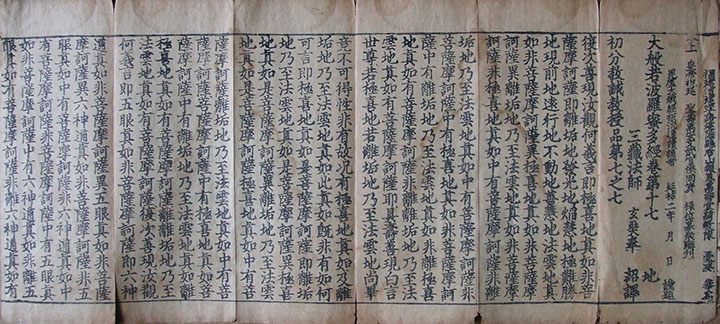 大般若波羅蜜多經卷第十七 地
三藏法師 玄奘奉 詔譯
初分教誡教授品第七之七
復次善現汝觀何義言即極喜地真如非菩
薩摩訶薩即離垢地發光地焰慧地極難勝
地現前地遠行地不動地善慧地法雲地真
如非菩薩摩訶薩異極喜地真如非菩薩摩
訶薩異離垢地乃至法雲地真如非菩薩摩
訶薩非極喜地真如中有菩薩摩訶薩非離
垢地乃至法雲地真如中有菩薩摩訶薩非
菩薩摩訶薩中有極喜地真如非菩薩摩訶
薩中有離垢地乃至法雲地真如非離極喜
地真如有菩薩摩訶薩非離離垢地乃至法
雲地真如有菩薩摩訶薩耶具壽善現白言
世尊若極喜地若離垢地乃至法雲地尚畢
竟不可得性非有故況有極喜地真如及離
垢地乃至法雲地真如此真如既非有如何
可言即極喜地真如是菩薩摩訶薩即離垢
地乃至法雲地真如是菩薩摩訶薩異極喜
地真如是菩薩摩訶薩異離垢地乃至法雲
地真如是菩薩摩訶薩極喜地真如中有菩
薩摩訶薩離垢地乃至法雲地真如中有菩
薩摩訶薩菩薩摩訶薩中有極喜地真如菩
薩摩訶薩中有離垢地乃至法雲地真如離
極喜地真如有菩薩摩訶薩離離垢地乃至
法雲地真如有菩薩摩訶薩復次善現汝觀
何義言即五眼真如非菩薩摩訶薩即六神
通真如非菩薩摩訶薩異五眼真如非菩薩
摩訶薩異六神通真如非菩薩摩訶薩非五
眼真如中有菩薩摩訶薩非六神通真如中
有菩薩摩訶薩非菩薩摩訶薩中有五眼真
如非菩薩摩訶薩中有六神通真如非離五
眼真如有菩薩摩訶薩非離六神通真如有